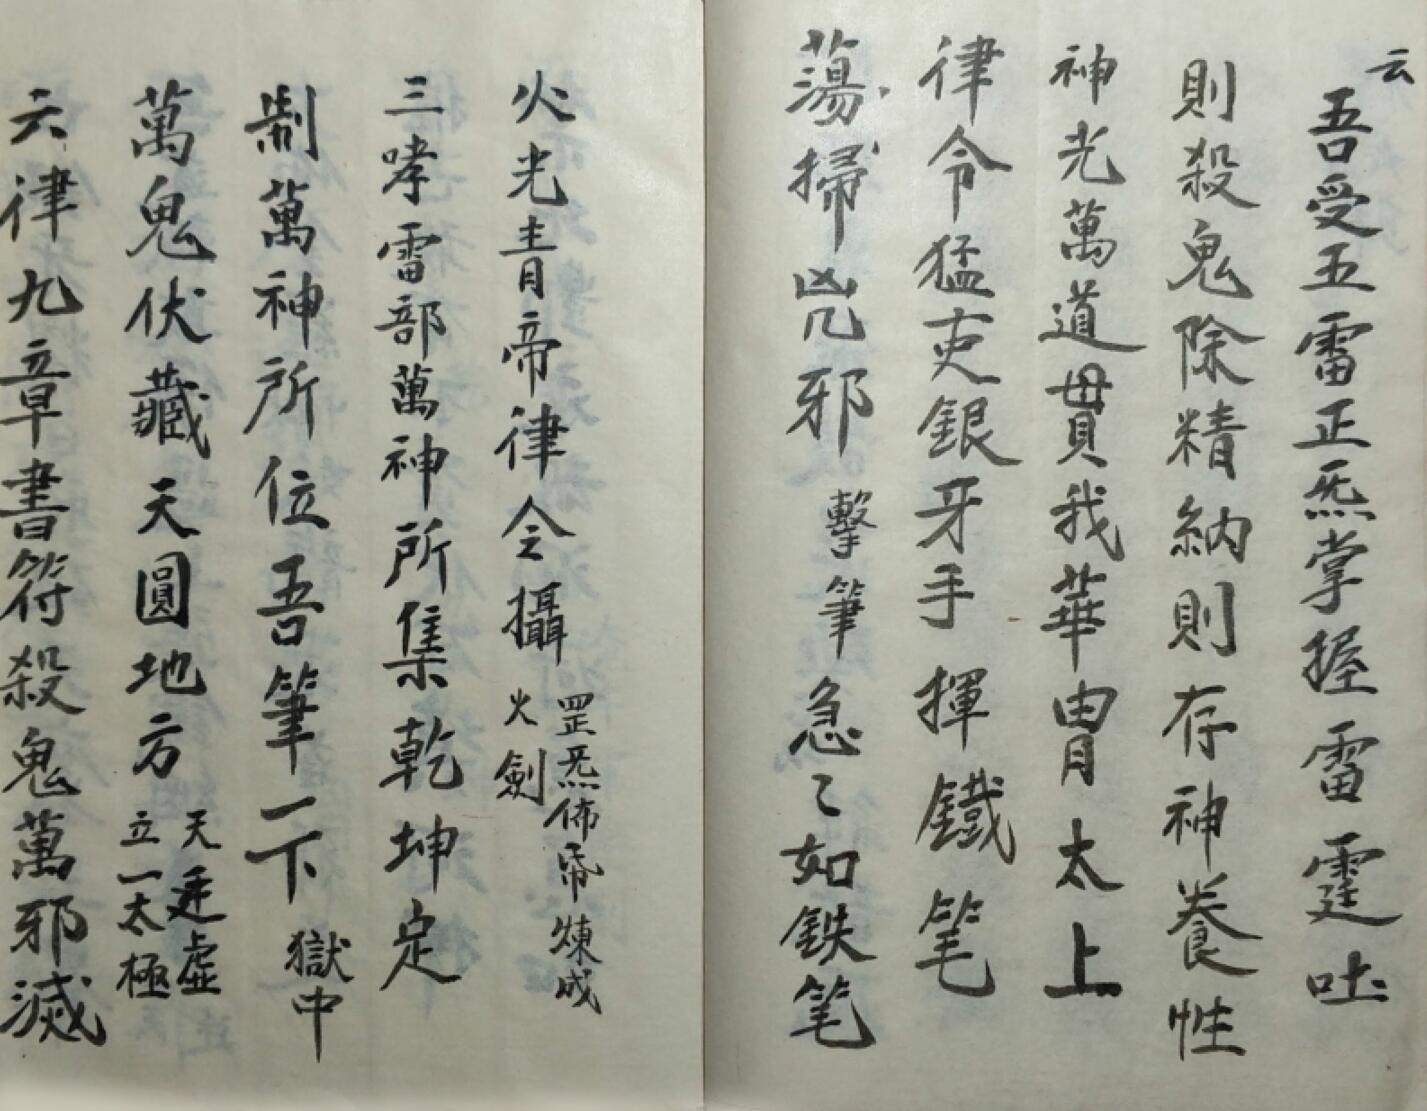 云
吾受五雷正炁掌握雷霆吐
則殺鬼除精納則存神養性
神光萬道貫我華胄太上
律令猛吏銀牙手揮鐵笔
蕩掃兇邪 擊筆 急〻如鉄笔
火光青帝律令攝 火劍
罡炁佈 煉成
三哮雷部萬神所集乾坤定
制萬神所位吾筆一下 獄中
萬鬼伏藏天圓地方 立一太極
天 虛
六律九章書符殺鬼萬邪滅